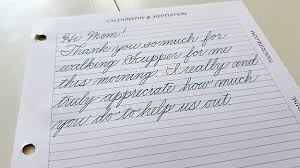 CALLIGRAPHY & MEDITATION
Hi Mom!
Thank you so much for
walking for me
this morning. I really and
truly appreciate how much
you do to help us out.